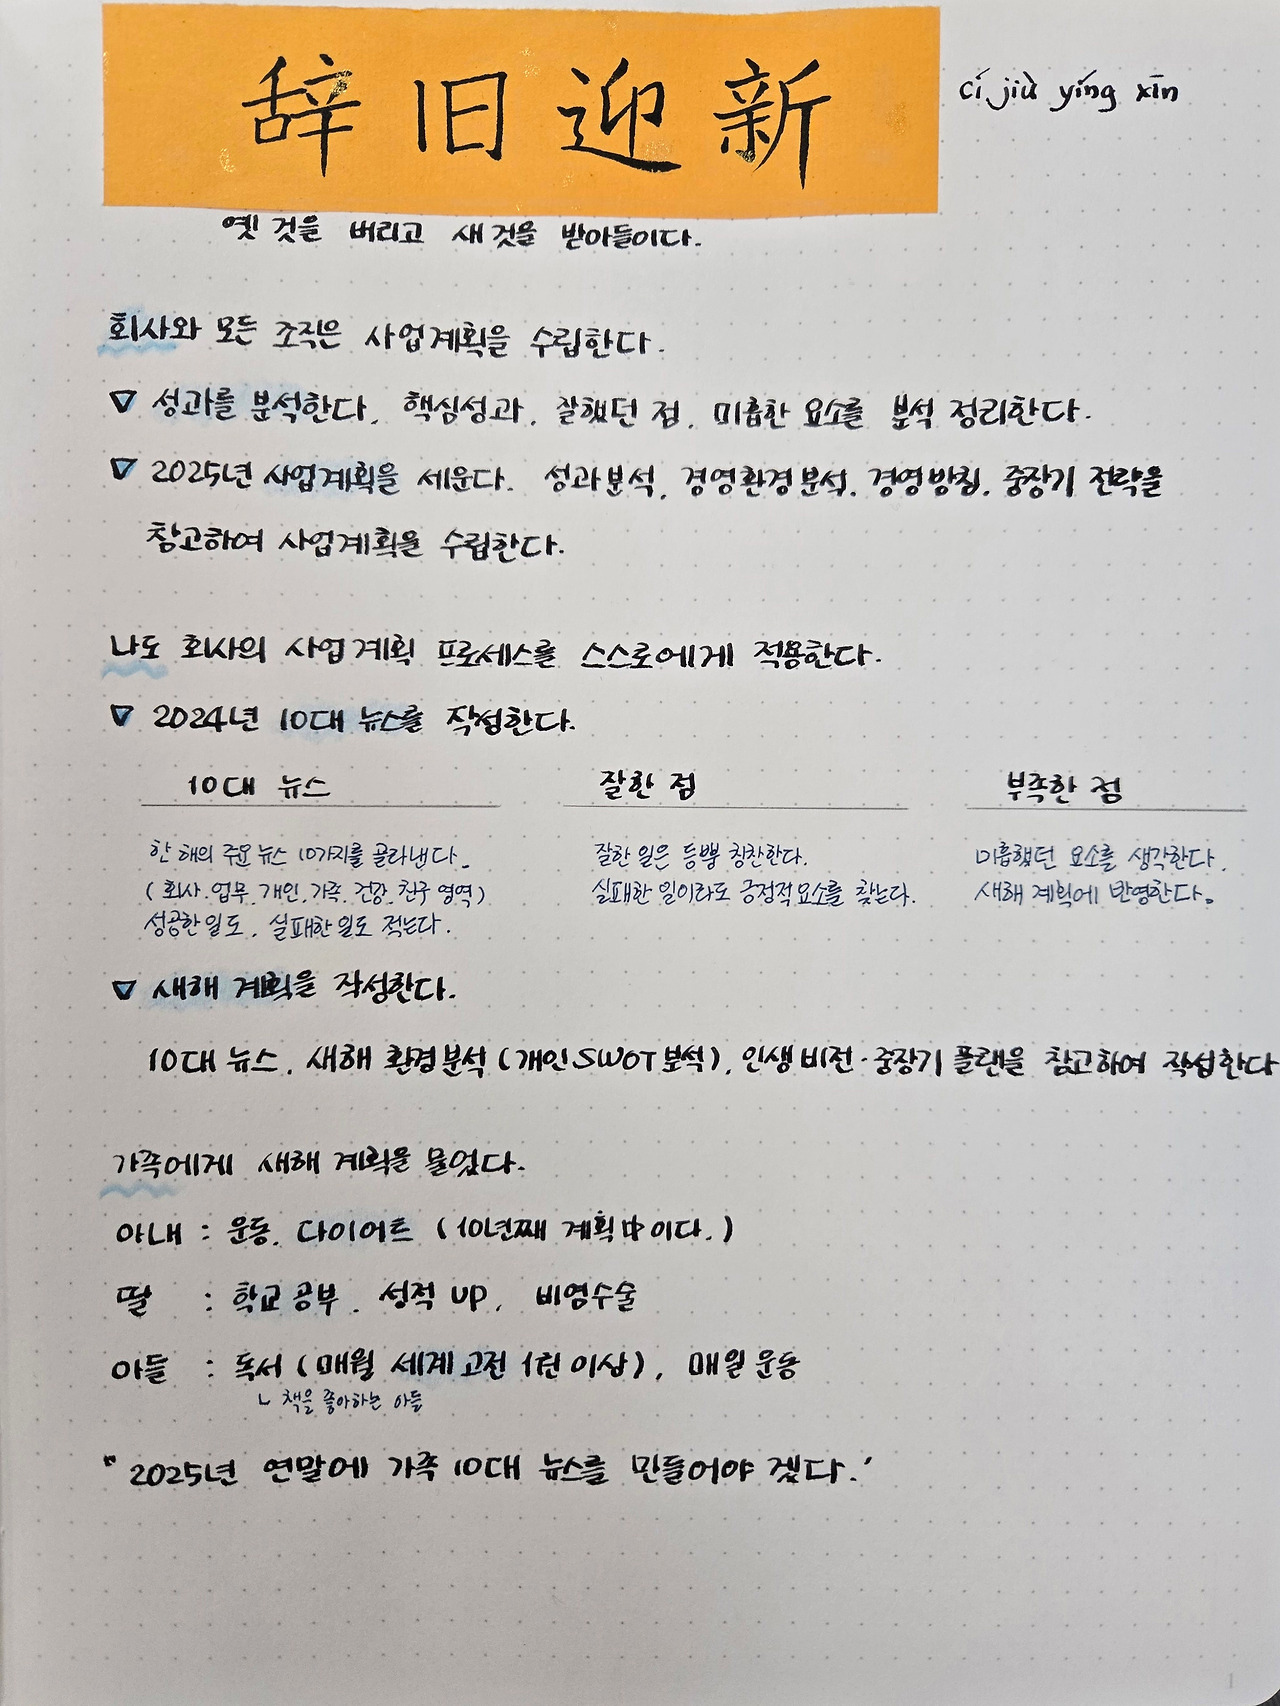 辞旧迎新 cí jiù yíng xīn
옛 것을 버리고 새것을 받아들이다.
회사와 모든 조직은 사업계획을 수립한다.
▽ 성과를 분석한다. 핵심성과, 잘했던 점, 미흡한 요소를 분석 정리한다.
▽ 2025년 사업계획을 세운다. 성과분석, 경영환경분석, 경영방침, 중장기 전략을
참고하여 사업계획을 수립한다.
나도 회사의 사업계획 프로세스를 스스로에게 적용한다.
▽ 2024년 10대 뉴스를 작성한다.
10대 뉴스 잘한 점 부족한 점
한 해의 주요 뉴스 10가지를 골라낸다. 잘한 일은 듬뿍 칭찬한다. 미흡했던 요소를 생각한다.
(회사.업무.개인.가족.건강.친구 영역) 실패한 일이라도 긍정적요소를 찾는다. 새해 계획에 반영한다.
성공한일도, 실패한일도 적는다.
▽ 새해 계획을 작성한다.
10대 뉴스, 새해 환경분석 (개인SWOT보석), 인생비전·중장기플랜을 참고하여 작성한다
가족에게 새해 계획을 물었다.
아내 : 운동, 다이어트 (10년째 계획中이다.)
딸 : 학교공부, 성적 UP, 비염수술
아들 : 독서 (매월 세계고전 1권 이상), 매일 운동
ㄴ 책을 좋아하는 아들
" 2025년 연말에 가족 10대 뉴스를 만들어야 겠다.'
1